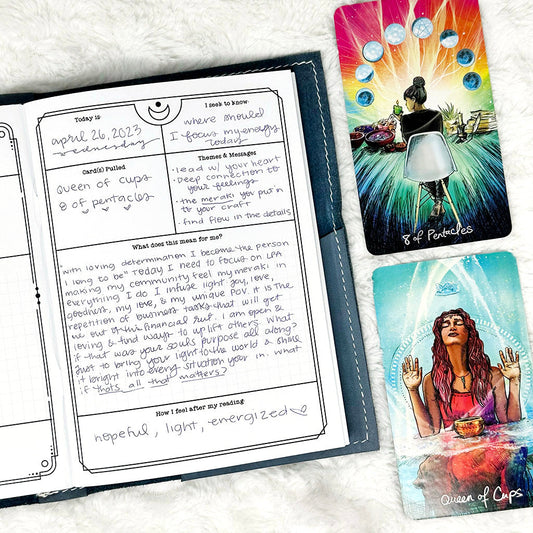 Today is
april 26, 2023
wednesday
I seek to know:
where should
I focus my energy
today
Card(s) Pulled
Queen of Cups
8 of pentacles
Themes & Messages
• lead w/ your heart
• Deep connection to
your feelings
• the meraki you put in
to your craft
• find flow in the details
What does this mean for me?
with loving determination I become the person
I long to be" Today I need to focus on LPA
making my community feel my meraki in
everything I do I infuse light, joy, love,
goodness, my love, & my unique POV. It is the
repetition of business tasks that will get
me out of this financial rut. I am open &
loving & find ways to uplift others. What
if that was your souls purpose all along?
Just to bring your light to the world & shine
it bright into every situation your in. what
if thats all that matters?
How I feel after my reading
hopeful, light, energized
8 of Pentacles
Queen of Cups